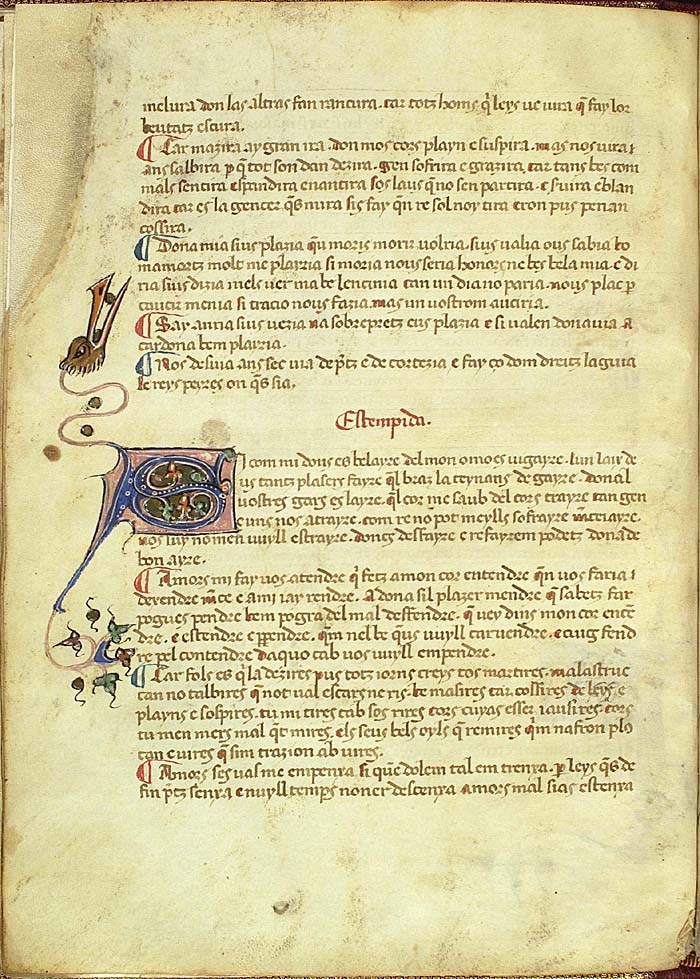 melura don las altras fan rancura. car totz homs q̃ leys ue uira q̃ fay lor
beutatz escura.
Car mazira ay gran ira. don mos cors playn e suspira. mas nos uira i
ans salbira p q̃ tot son dan dezira. gen sofrira e grazira. car tans bes com
mals sentira espandira enantira sos laus q̃ no sen partira. e suira e blan
dira car es la gencer. q̃s mira sis fay qu re sol noy tira e ron pus penan
cossira.
Dona mia sius plazia qu moris morir uolria. sius ualia ous sabia bo
ma mortz molt me playria si moria nous seria honors ne bes bela mia. e di
ria sius dizia mels uer ma be lencinia can un dia no paria. nous plac p
menia si tracio nous fazia. mas un uostrom auciria.
Say auria sius uezia na sobrepretz eus plazia e si ualen dona uia a
cardona bem playria.
Nos desuia ans sec uia de p̃tz e de cortezia e fay so dom dreitz la guia
le reys peyres on q̃s sia.
Estempida.
Si com mi dons es belayre del mon o mo es uigayre. lun lair de
us tantz plasers fayre q̃l braz la teynans de gayre. don al
uostres gars es layre. q̃l cor me saub del cors trayre tan gen
e uns nos atrayre. com re no pot meylls sofrayre m̃ceiayre.
nos luy no men uuyll estrayre. doncs desfayre e refayrem podetz dona de
bon ayre.
Amors mi fay uos atendre q̃ fetz amon cor entendre q̃n uos faria i
deyendre m̃ce e ami iay rendre. A dona sil plazer mendre q̃ sabetz far
pogues pendre bem pogra del mal deffendre. q̃ uey dins mon cor encē
dre. e estendre e p̃endre. q̃m nel be q̃us uuyll car uendre. e cuig fend
re pel contendre daquo cab uos uuyll empendre.
Car fols es q̃ la dezires pus totz iorns creys tos martires. malastruc
can no talbires q̃ not ual escarsne ris. be masires car cossires de leys e
playns e sospires. tu mi tires cab sos rires cors cuyas esser iausires. cors
tu men mers mal q̃t mires. els seus bels oyls q̃ remires q̃m nafron plus
can e uires q̃ sim trazion ab uires.
Amors ses uas me empenra si que dolem tal em trenra. p leys q̃s de
fin p̃tz senra e nuyll temps non er destenra amors mal sias estenra